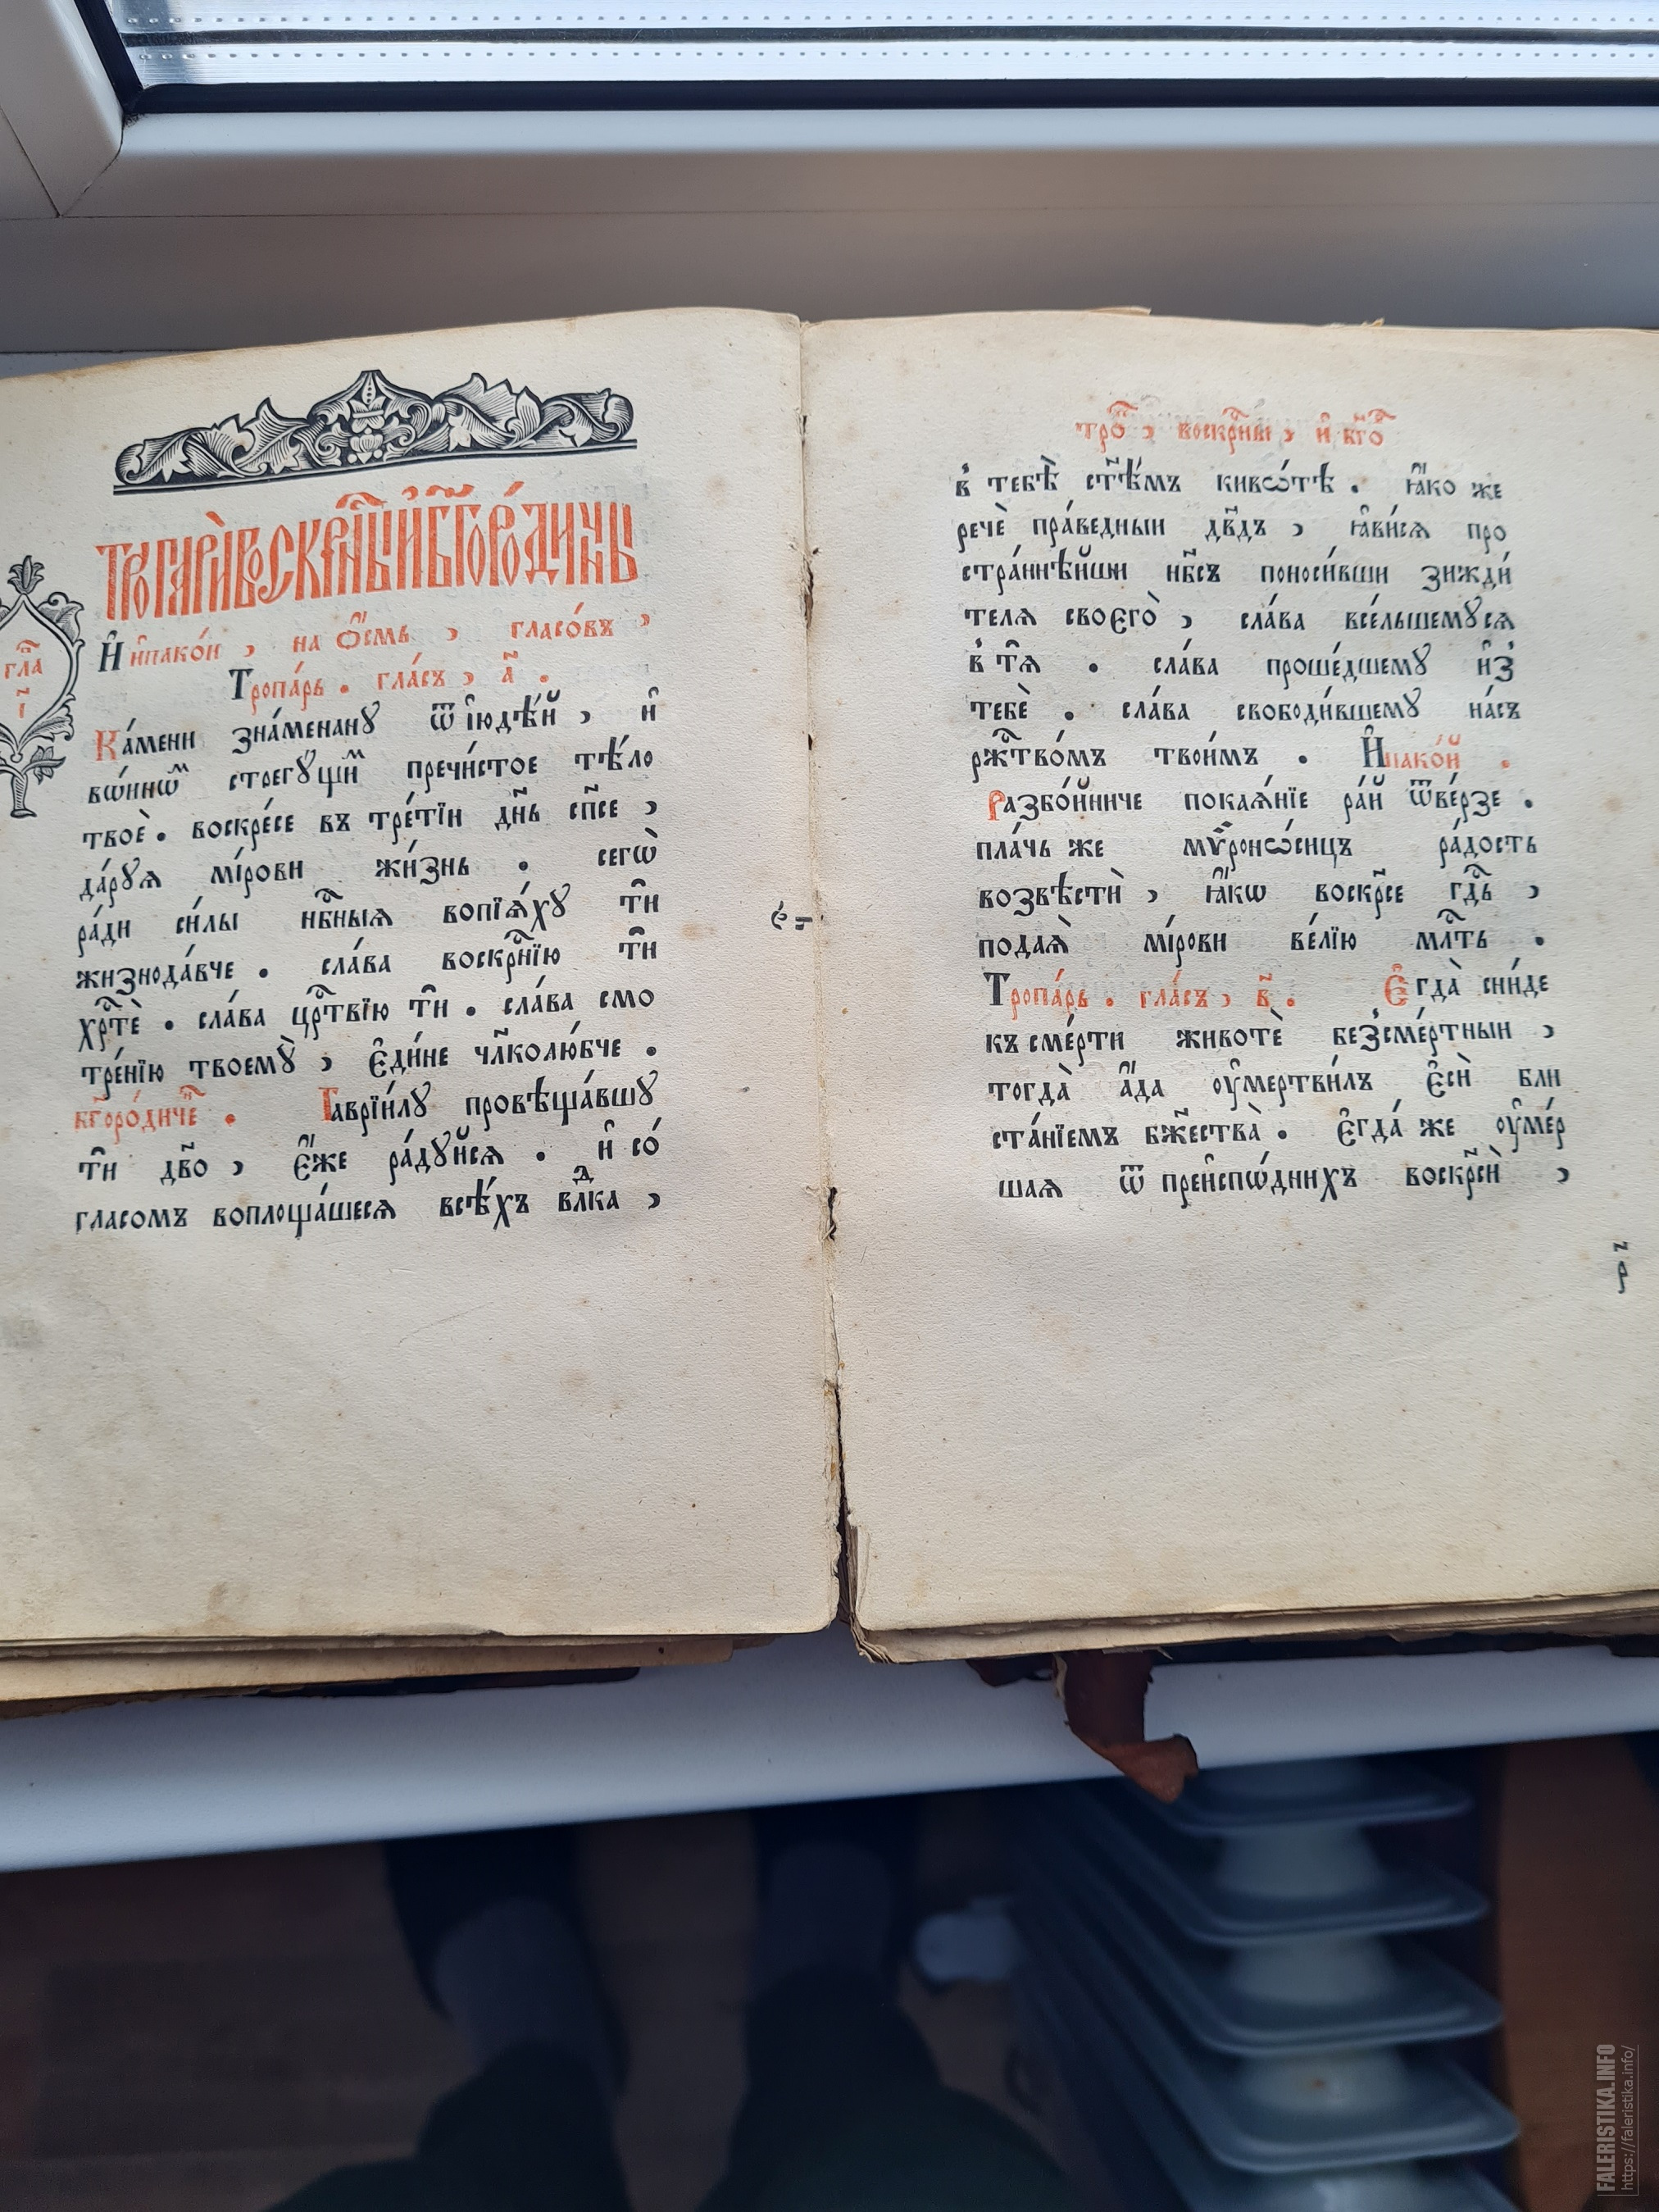 Тропарѝ воскр҃сны и҆ бг҃оро́дичны
гла҃
І҃
И҆ и҆пакои́, на ѻ҆́смь, гласо́въ,
Тропа́рь. гла́съ, а҃.
Ка́мени зна́менанꙋ ѿ і҆юдѣ́й, и҆
вѡ́инѡм стрегꙋ́щим пречи́стое тѣ́ло
твоѐ. воскре́се въ тре́тїи дн҃ь сп҃се,
да́рꙋѧ мі́рови жи́знь. сегѡ̀
ра́ди си́лы нбⷭ҇ныѧ вопїѧ́хꙋ ти҆
жизнода́вче. сла́ва воскрⷭ҇нїю ти҆
хрⷭ҇тѐ. сла́ва црⷭ҇твїю ти҆. сла́ва смо
тре́нїю твоемꙋ̀, є҆ди́не чл҃колю́бче.
бг҃оро́диченъ. Гаврїи́лꙋ провѣща́вшꙋ
ти҆ дв҃о, є҆́же ра́дꙋйсѧ. и҆ со́
гласомъ воплоща́шесѧ всѣ́хъ влⷣка,
рн҃і
тро̑, воскрⷭ҇ны, и҆ бг҃о
в тебѣ̀ ст҃ѣ́мъ кивѡ́тѣ. ꙗ҆́ко же
речѐ пра́ведныи дв҃дъ, ꙗ҆ви́сѧ про
стра́ннѣйши нб҃съ поноси́вши зижди́
телѧ своєго̀, сла́ва все́льшемꙋсѧ
в тѧ̑. сла́ва проше́дшемꙋ и҆з̾
тебѐ. сла́ва свободи́вшемꙋ на́съ
ржⷭ҇тво́мъ твои́мъ. И҆пако́й.
Разбо́йниче покаѧ́нїе ра́й ѿве́рзе.
пла́чь же мѵронѡ́сицъ ра́дость
возвѣстѝ, ꙗ҆́кѡ воскр҃се гдⷭ҇ь,
подаѧ̀ мі́рови ве́лїю млⷭ҇ть.
Тропа́рь. гла́съ, в҃. Є҆гда̀ сни́де
къ сме́рти животѐ без̾сме́ртныи,
тогда̀ а҆́да ᲂу҆мертви́лъ є҆сѝ бли
ста́нїемъ бж҃ества̀. Є҆гда́ же ᲂу҆ме́р
шаѧ ѿ преи҆спѡ́днихъ воскр҃сѝ,
р҃
FALERISTIKA.INFO
https://faleristika.info/